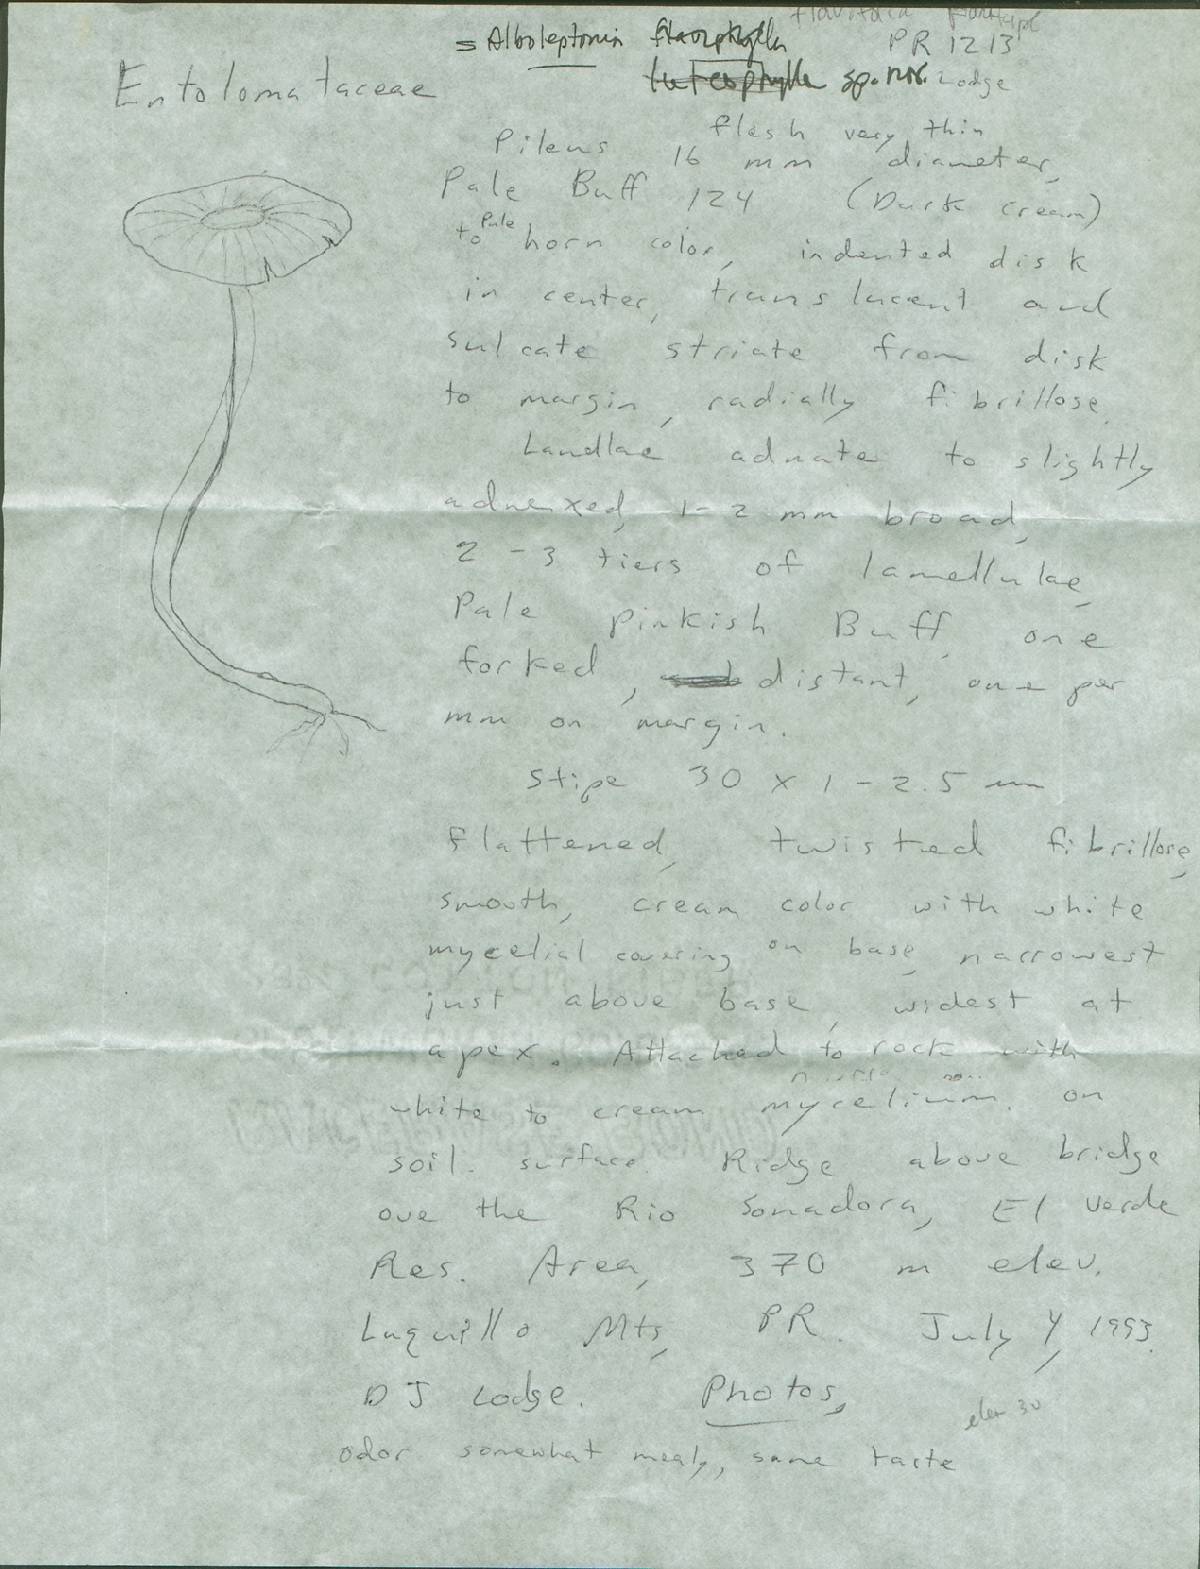 = Alboleptonia flavophylla PR 1213
luteophylla sp. nov. Lodge
Entolomataceae
flesh very thin
Pileus 16 mm diameter,
Pale Buff 124 (Dark cream)
to Pale horn color, indented disk
in center, translucent and
sulcate striate from disk
to margin, radially fibrillose.
Lamellae adnate to slightly
adnexed, 1-2 mm broad,
2-3 tiers of lamellulae,
Pale pinkish Buff, one
forked, distant, one per
mm on margin.
Stipe 30 x 1-2.5 mm
flattened, twisted fibrillose,
smooth, cream color with white
mycelial covering on base, narrowest
just above base, widest at
apex. Attached to rock with
white to cream mycelium. on
soil surface. Ridge above bridge
ove the Rio Sonadora, El Verde
Res. Area, 370 m elev.
Luquillo Mts, PR. July 4, 1993.
DJ Lodge. Photos,
elev 30
odor somewhat mealy, same taste